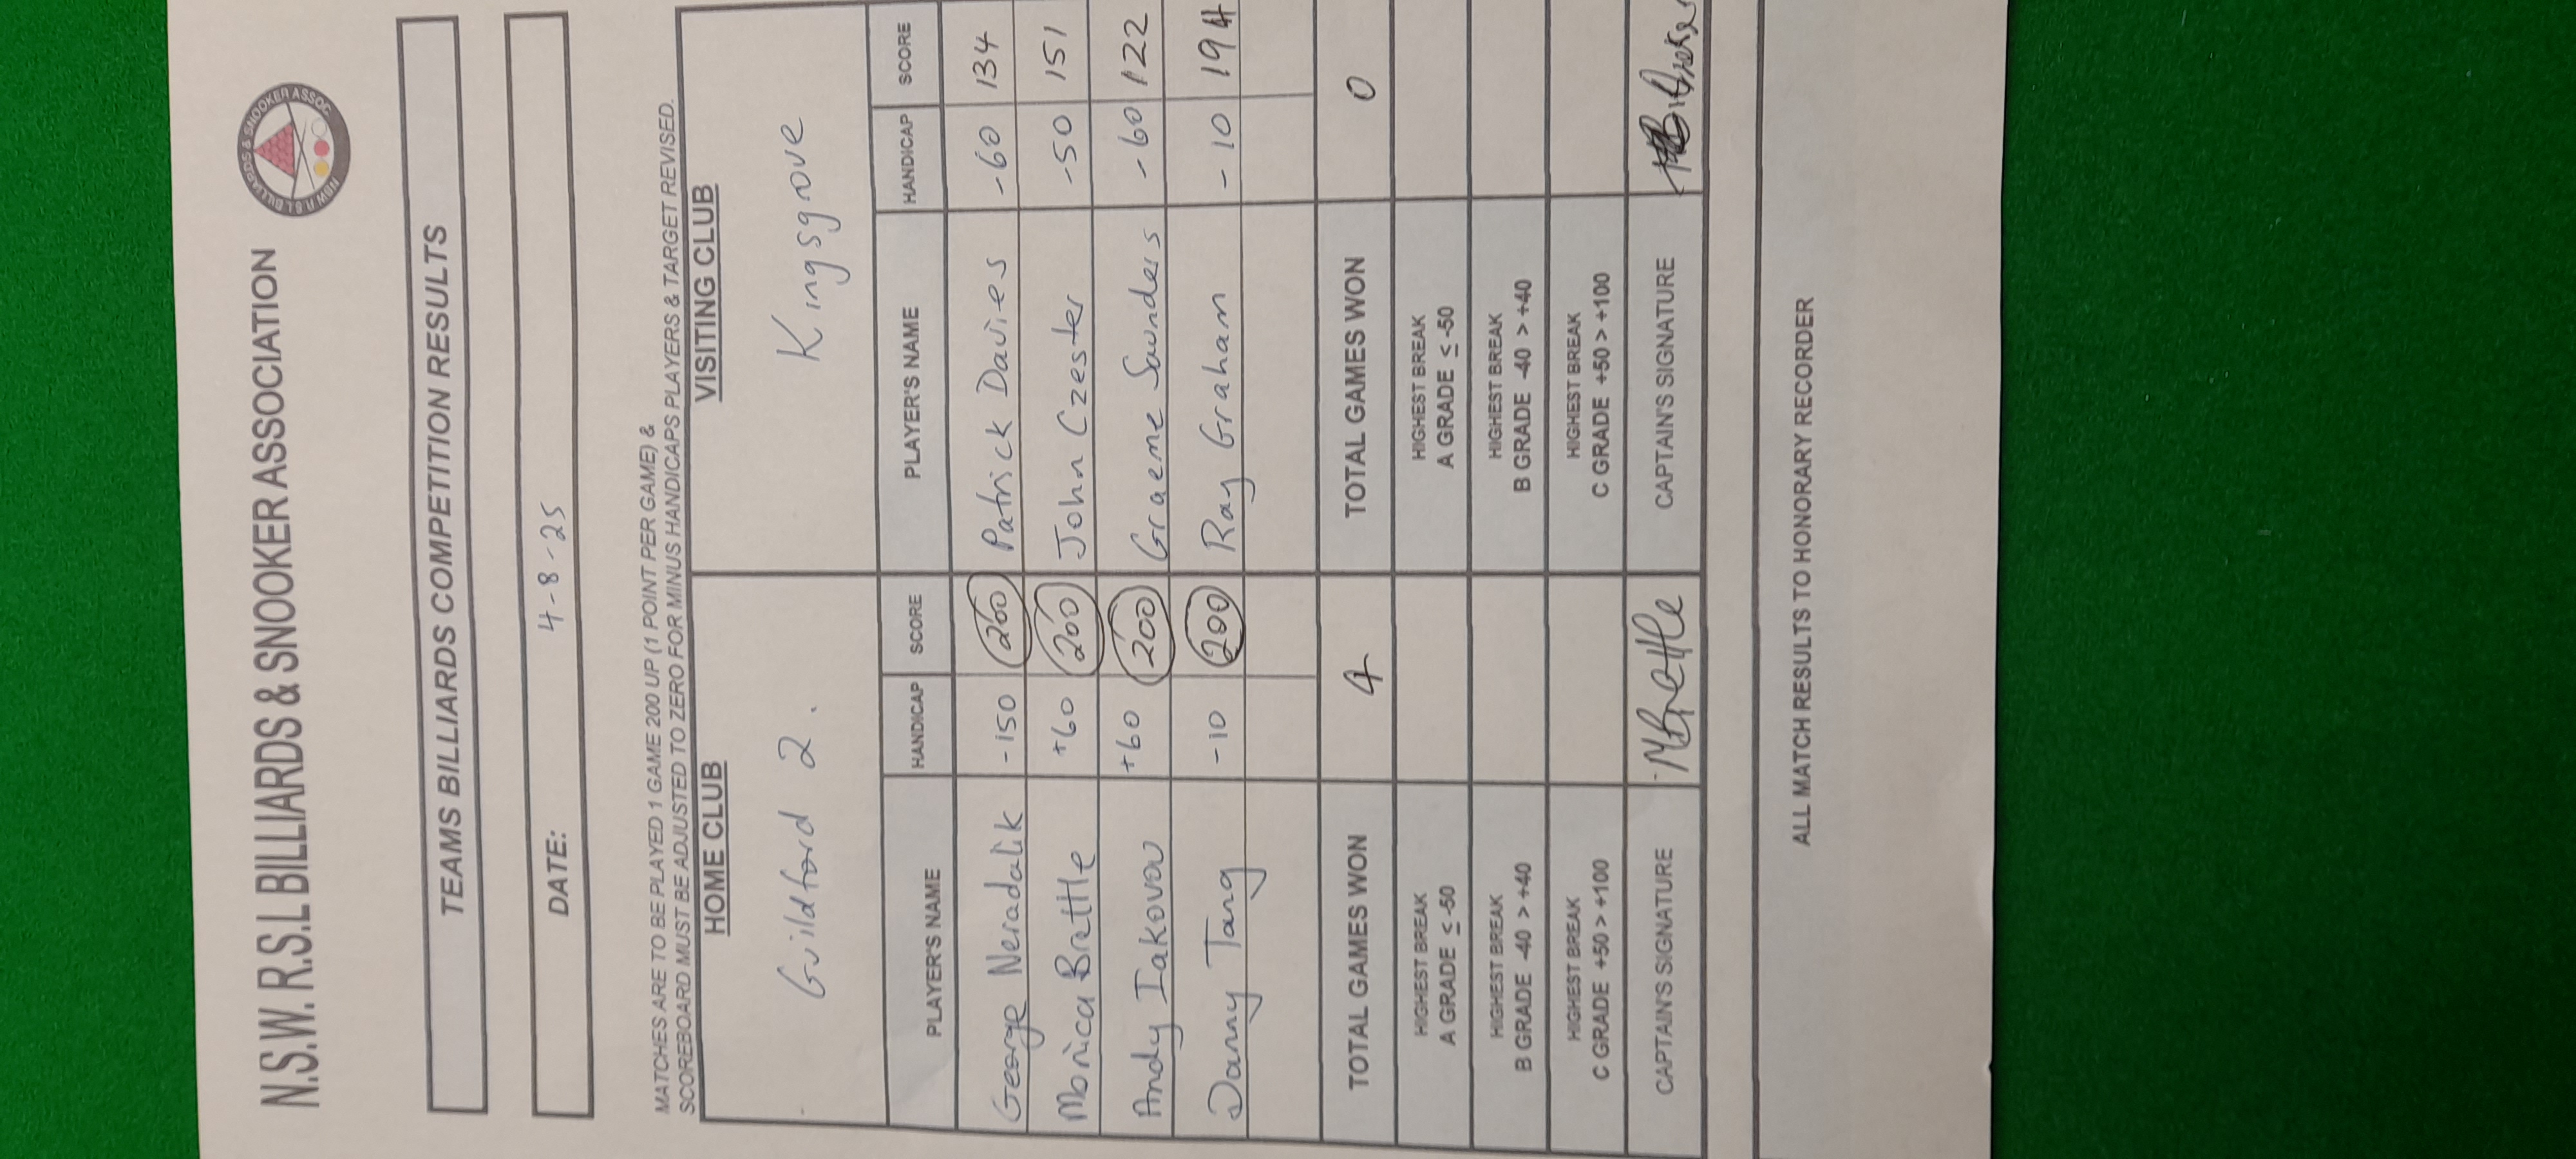 N.S.W. R.S.L BILLIARDS & SNOOKER ASSOCIATION
N.S.W. R.S.L BILLIARDS & SNOOKER ASSOC
TEAMS BILLIARDS COMPETITION RESULTS
DATE: 4-8-25
MATCHES ARE TO BE PLAYED 1 GAME 200 UP (1 POINT PER GAME) &
SCOREBOARD MUST BE ADJUSTED TO ZERO FOR MINUS HANDICAPS PLAYERS & TARGET REVISED.
HOME CLUB VISITING CLUB
Guildford 2. Kingsgrove
PLAYER'S NAME HANDICAP SCORE PLAYER'S NAME HANDICAP SCORE
George Neradalik -150 200 Patrick Davies -60 134
Monica Brettle +60 200 John Czester -50 151
Andy Iakovou +60 200 Graeme Saunders -60 122
Danny Tang -10 200 Ray Graham -10 194
TOTAL GAMES WON 4 TOTAL GAMES WON 0
HIGHEST BREAK HIGHEST BREAK
A GRADE ≤ -50 A GRADE ≤ -50
HIGHEST BREAK HIGHEST BREAK
B GRADE -40 > +40 B GRADE -40 > +40
HIGHEST BREAK HIGHEST BREAK
C GRADE +50 > +100 C GRADE +50 > +100
CAPTAIN'S SIGNATURE MBrettle CAPTAIN'S SIGNATURE
ALL MATCH RESULTS TO HONORARY RECORDER